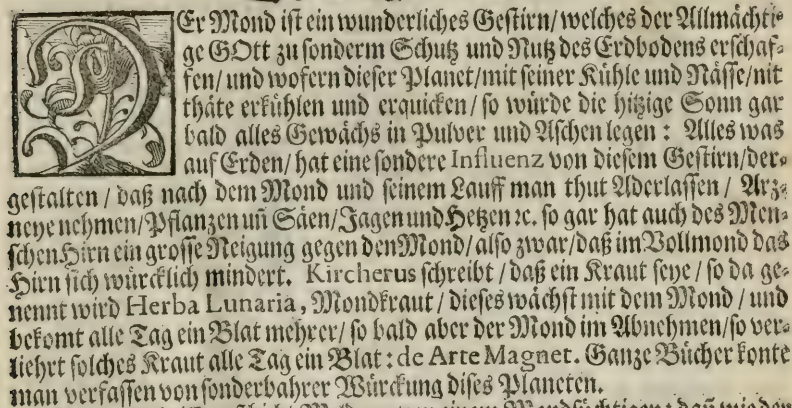 DEr Mond ist ein wunderliches Gestirn/ welches der Allmächti-
ge GOtt zu sonderm Schutz und Nutz des Erdbodens erschaf-
fen/ und wofern dieser Planet/ mit seiner Kühle und Nässe/ nit
thäte erkühlen und erquicken/ so würde die hitzige Sonn gar
bald alles Gewächs in Pulver und Aschen legen: Alles was
auf Erden/ hat eine sondere Influenz von diesem Gestirn/ der-
gestalten / daß nach dem Mond und seinem Lauff man thut Aderlassen / Arz-
neye nehmen/ Pflanzen uñ Säen/ Jagen und Hetzen ꝛc. so gar hat auch des Men-
schen Hirn ein grosse Neigung gegen den Mond/ also zwar/ daß im Vollmond das
Hirn sich würcklich mindert. Kircherus schreibt / daß ein Kraut seye / so da ge-
nennt wird Herba Lunaria, Mondkraut / dieses wächst mit dem Mond / und
bekomt alle Tag ein Blat mehrer/ so bald aber der Mond im Abnehmen/ so ver-
liehrt solches Kraut alle Tag ein Blat: de Arte Magnet. Ganze Bücher konte
man verfassen von sonderbahrer Würckung dises Planeten.